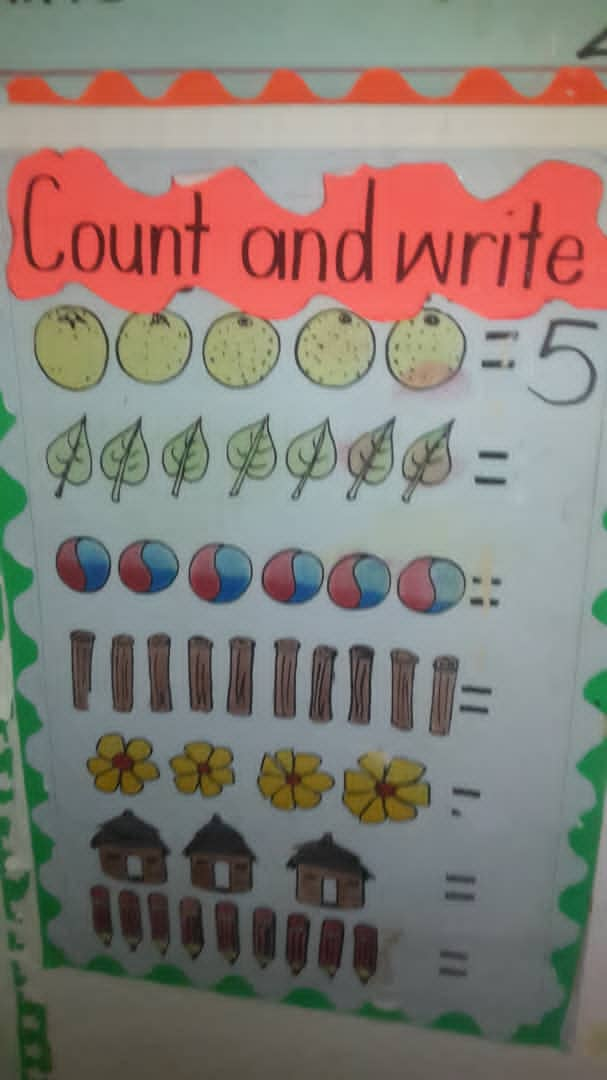 Count and write
= 5
=
=
=
=
=
=